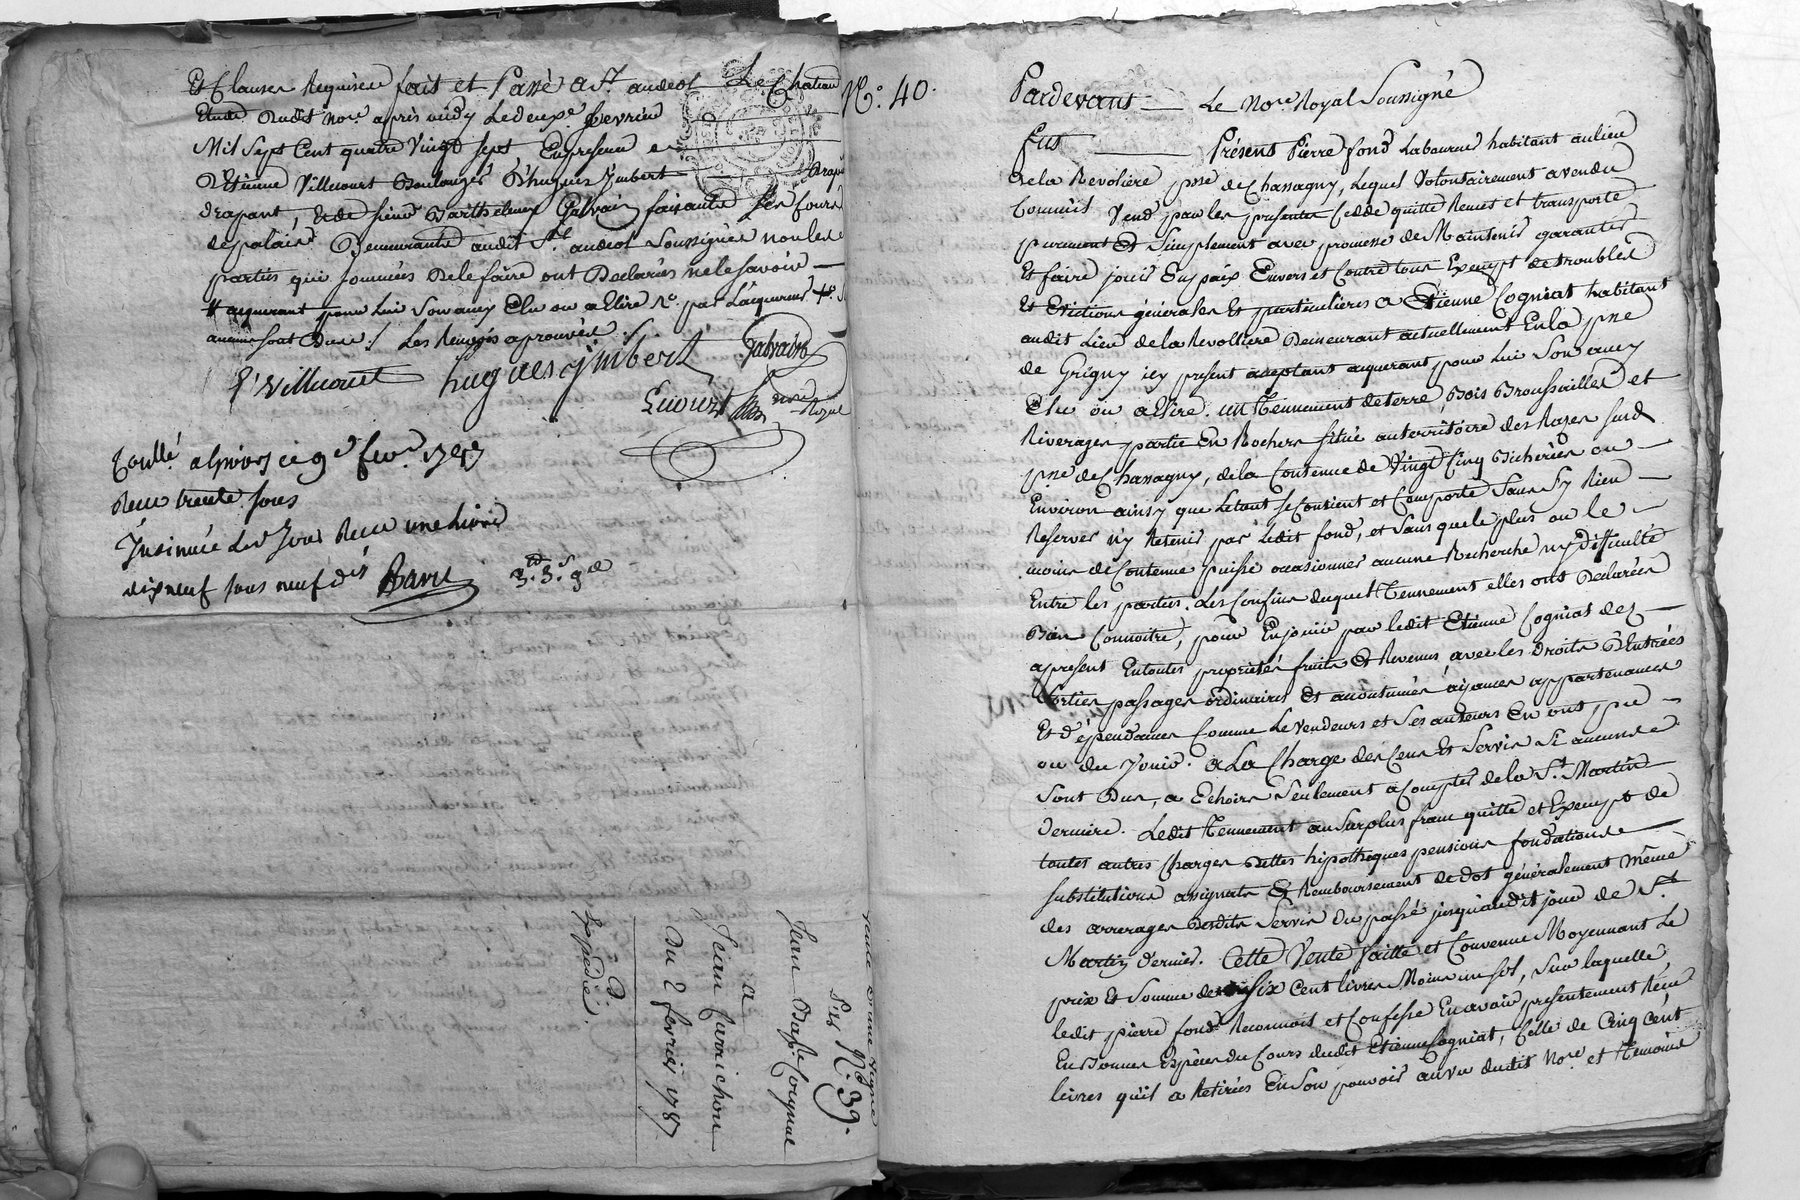 Et Clauses Requises fait et Passé a St. andeol Le Chateau
Etude Dudit Nore. après midy Le deuxe. fevrier
Mil Sept Cent quatre Vingt Sept En presence
D'Etienne Villecourt Boulanger D'hugues Jmbert
, et de sieur Barthelemy Galvain faisant les cours
de palais Demeurants audit St. andeol Soussignés non les
parties qui sommées de le faire ont Declarées ne le Savoir
# aquerant pour lui Son amy Elu ou a Elire
aucune sont Dues ./. Les Renvoys aprouvés ./.
E. Villecourt hugues jmbert Galvain
nore. Royal
Conllé. a Givors ce 9e. fevr. 1787
Recu trente sous
Jnsinuée led. Jour Recu une livre
dix neuf sous neuf drs
3. 3. 9d
Vente D'une Vigne
Par No. 39.
Jean Bapte. Coignat
a
Jean
Du 2 fevrier 1787
Expedié.
No. 40.
Pardevant Le Nore. Royal Soussigné
fut Présent Pierre fond Laboureur habitant au lieu
de la Revolière psse. de Chassagny, Lequel Volontairement a vendu
Comme il Vend par les presentes Cedde quitte Remet et transporte
purement Et Simplement avec promesse de Maintenir garantir
Et faire jouir En paix Envers et Contre tous Exempt de troubles
Et Evictions générales Et particulières a Etienne Cogniat habitant
audit Lieu de la Revollière Demeurant actuellement En la psse
de Grigny icy present aceptant aquerant pour Lui Son amy
Elu ou a Elire. un Tennement de terre Bois Broussailles et
Riverages partie En Rochers situé au territoire des Razes sur d.
psse de Chassagny, de la Contenue de Vingt Cinq Bicherées ou
Environ ainsy que Le tout se Contient et Comporte Sans S'y Rien
Reserver n'y Retenir par Ledit fond, et Sans que le plus ou le
moins de Contenue puisse ocasionner aucune Recherche ny difficulté
Entre les parties. Les Confins duquel Tennement elles ont Declarées
Bien Connoitre, pour En jouir par ledit Etienne Cogniat dez
apresent En toutes proprietés fruits Et Revenus, avec les Droits D'Entrées
Sorties passages ordinaires Et acoutumés aisances appartenances
Et d'épendances Comme Le Vendeurs et Ses auteurs En ont pu
ou du Jouir. a La Charge des Cens Et Servis Si aucuns
Sont Dus, a Echoir Seulement a Compter de la St. Martin
derniere. Ledit Tennement au Surplus franc quitte et Exempt de
toutes autres Charges Dettes hipotheques pensions fondations
substitutions assignats Et Remboursement de dot généralement même
des arrerages Desdits Servis du passé jusqu'audit jour de St.
Martin dernier. Cette Vente faitte et Convenue Moyennant Le
prix Et Somme de Six Cent livres Moins un sol, Sur laquelle
ledit pierre fond Reconnoit et Confesse En avoir presentement Reçu
En Bonnes Espèces du Cours dudit Etienne Cogniat, Celle de Cinq Cent
livres qu'il a Retirées En Son pouvoir au vu dudit Nore. et Témoins